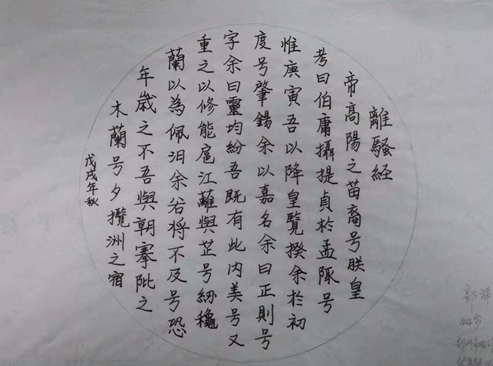 離騷經
帝高陽之苗裔号朕皇
考曰伯庸攝提貞於孟陬号
惟庚寅吾以降皇覽揆余於初
度号肇錫余以嘉名余曰正則号
字余曰靈均紛吾既有此内美号又
重之以修能扈江蘺與芷号紉穐
蘭以為佩汩余若將不及号恐
年歲之不吾與朝搴阰之
木蘭号夕攬洲之宿
戊戌年秋